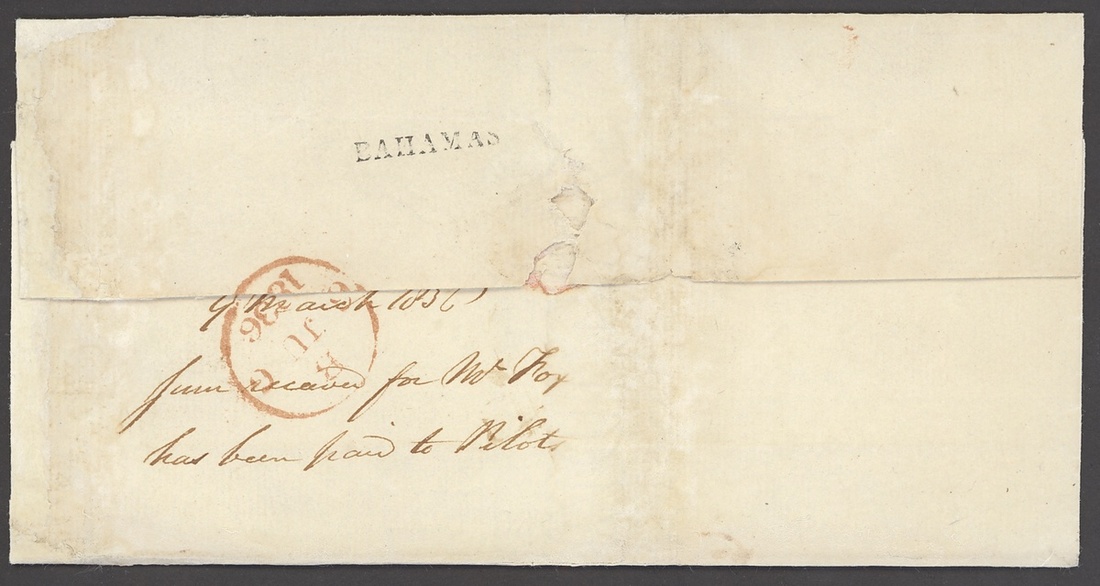 BAHAMAS
9 March 1836
Sum received for Mr Fox
has been paid to Pilots
1836